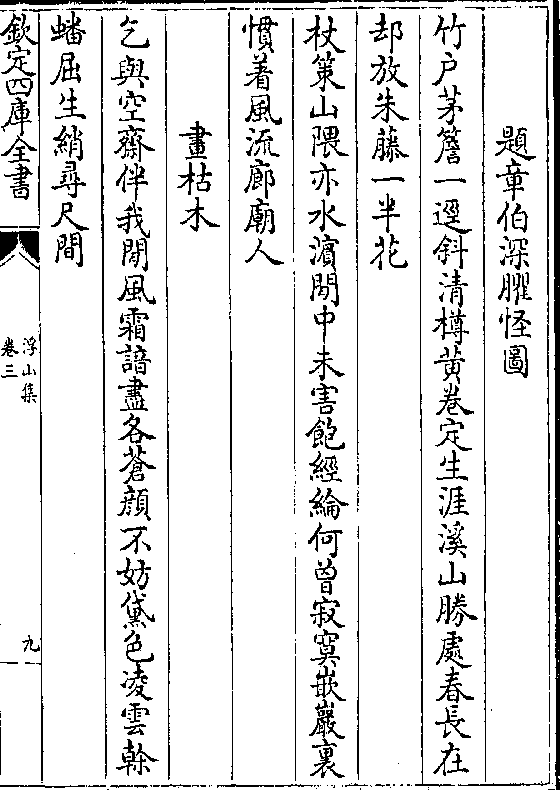 題章伯深臞怪圖
竹户茅簷一逕斜清樽黄卷定生涯溪山勝處春長在
却放朱藤一半花
杖䇿山隈亦水濵閒中未害飽經綸何曾寂寞嵌巖裏
慣着風流廊廟人
畫枯木
乞與空齋伴我閒風霜諳盡各蒼顔不妨黛色凌雲幹
蟠屈生綃尋尺間
欽定四庫全書
浮山集
卷三
九